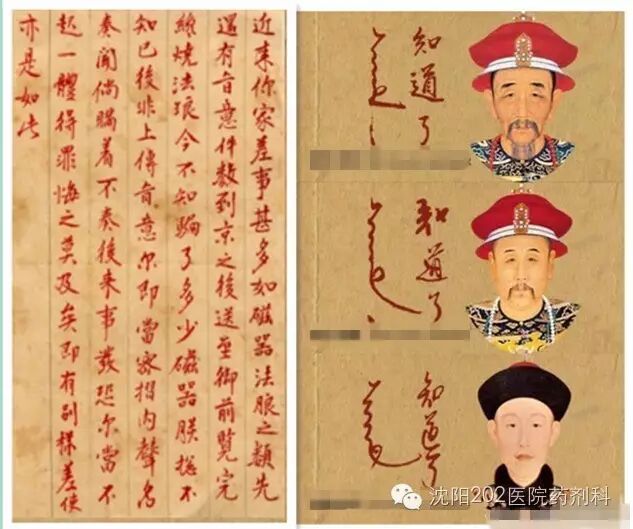 近来你家差事甚多如磁器法瑯之類先
還有旨意件数到京之後送至御前覽完
纔燒法瑯今不知騙了多少磁器朕總不
知已後非上傳旨意尔即當密摺内聲名
奏聞倘瞞着不奏後来事發恐尔當不
起一體得罪悔之莫及矣即有别樣差使
亦是如此
知道了
知道了
知道了
沈阳202医院药剂科